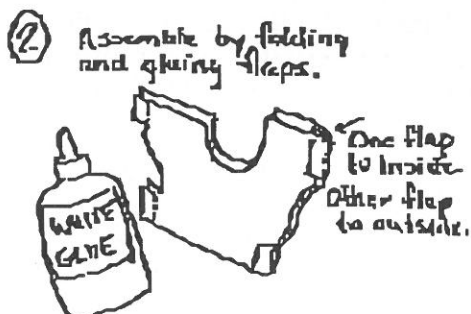 2 Assemble by folding
and gluing flaps.
One flap
to inside
Other flap
to outside.
WHITE
GLUE